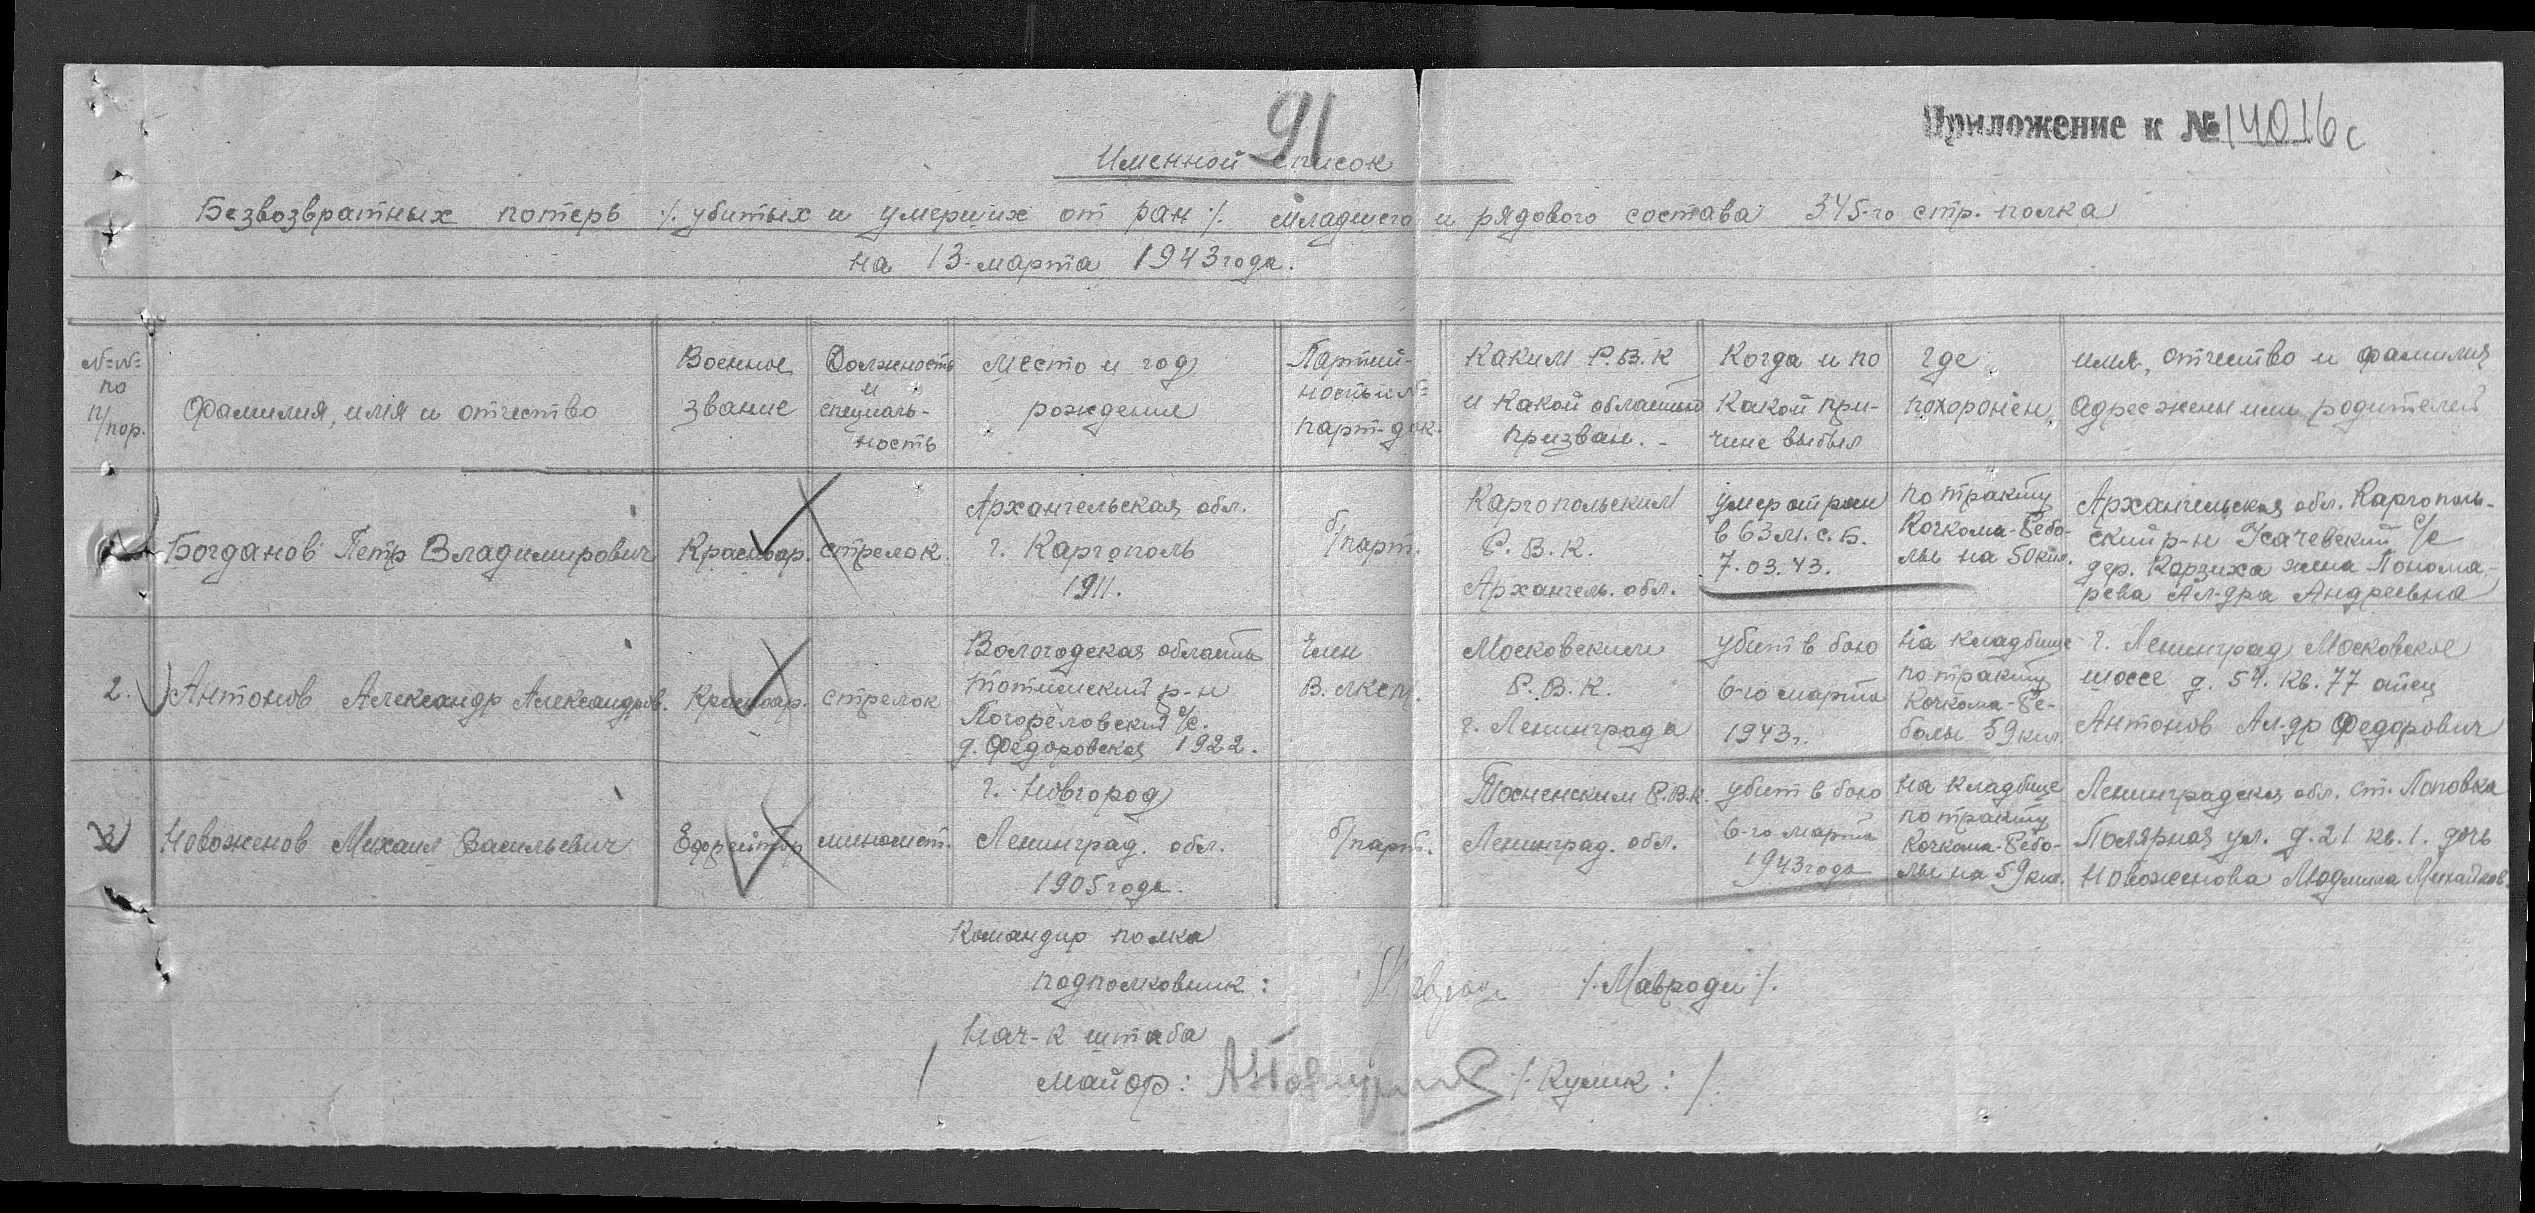 91
Приложение к № 14016с
Именной список
Безвозвратных потерь /. убитых и умерших от ран /. младшего и рядового состава 345-го стр. полка
на 13-марта 1943 года.
№=№=
по
п/пор.
Фамилия, имя и отчество
Военное
звание
Должность
и
специаль-
ность
Место и год
рождения
Партий-
ность и №=
парт-док.
Каким Р.В.К
и какой областью
призван. -
Когда и по
какой при-
чине выбыл
где
похоронен
имя, отчество и фамилия
адрес жены или родителей
Богданов Петр Владимирович
Красноар.
стрелок.
Архангельская обл.
г. Каргополь
1911.
б/парт.
Каргопольским
Р.В.К.
Архангель. обл.
умер от ран
в 63 м.с.б.
7.03.43.
по тракту
Кочкома-Ребо-
лы на 50 кил.
Архангельская обл. Каргополь-
ский р-н Усачевский с/с
дер. Карзиха жена Понома-
рева Ал-дра Андреевна
2.
Антонов Александр Александров.
Красноар.
стрелок
Вологодская область
Тотемский р-н
Погореловский с/с.
д. Федоровская 1922.
Член
В.ЛКСМ.
Московским
Р.В.К.
г. Ленинграда
убит в бою
6-го марта
1943 г.
на кладбище
по тракту
Кочкома-Ре-
болы 59 кил.
г. Ленинград Московское
шоссе д. 54. кв. 77 отец
Антонов Ал-др Федорович
3
Новоженов Михаил Васильевич
Ефрейтор
миномет.
г. Новгород
Ленинград. обл.
1905 года.
б/парт.
Тосненским Р.В.К.
Ленинград. обл.
убит в бою
6-го марта
1943 года
на кладбище
по тракту
Кочкома-Ребо-
лы на 59 кил.
Ленинградская обл. ст. Поповка
Полярная ул. д. 21 кв. 1. дочь
Новоженова Людмила Михайлов.
Командир полка
подполковник: /. Мавроди /.
Нач-к штаба
майор: /. Кулик: /.